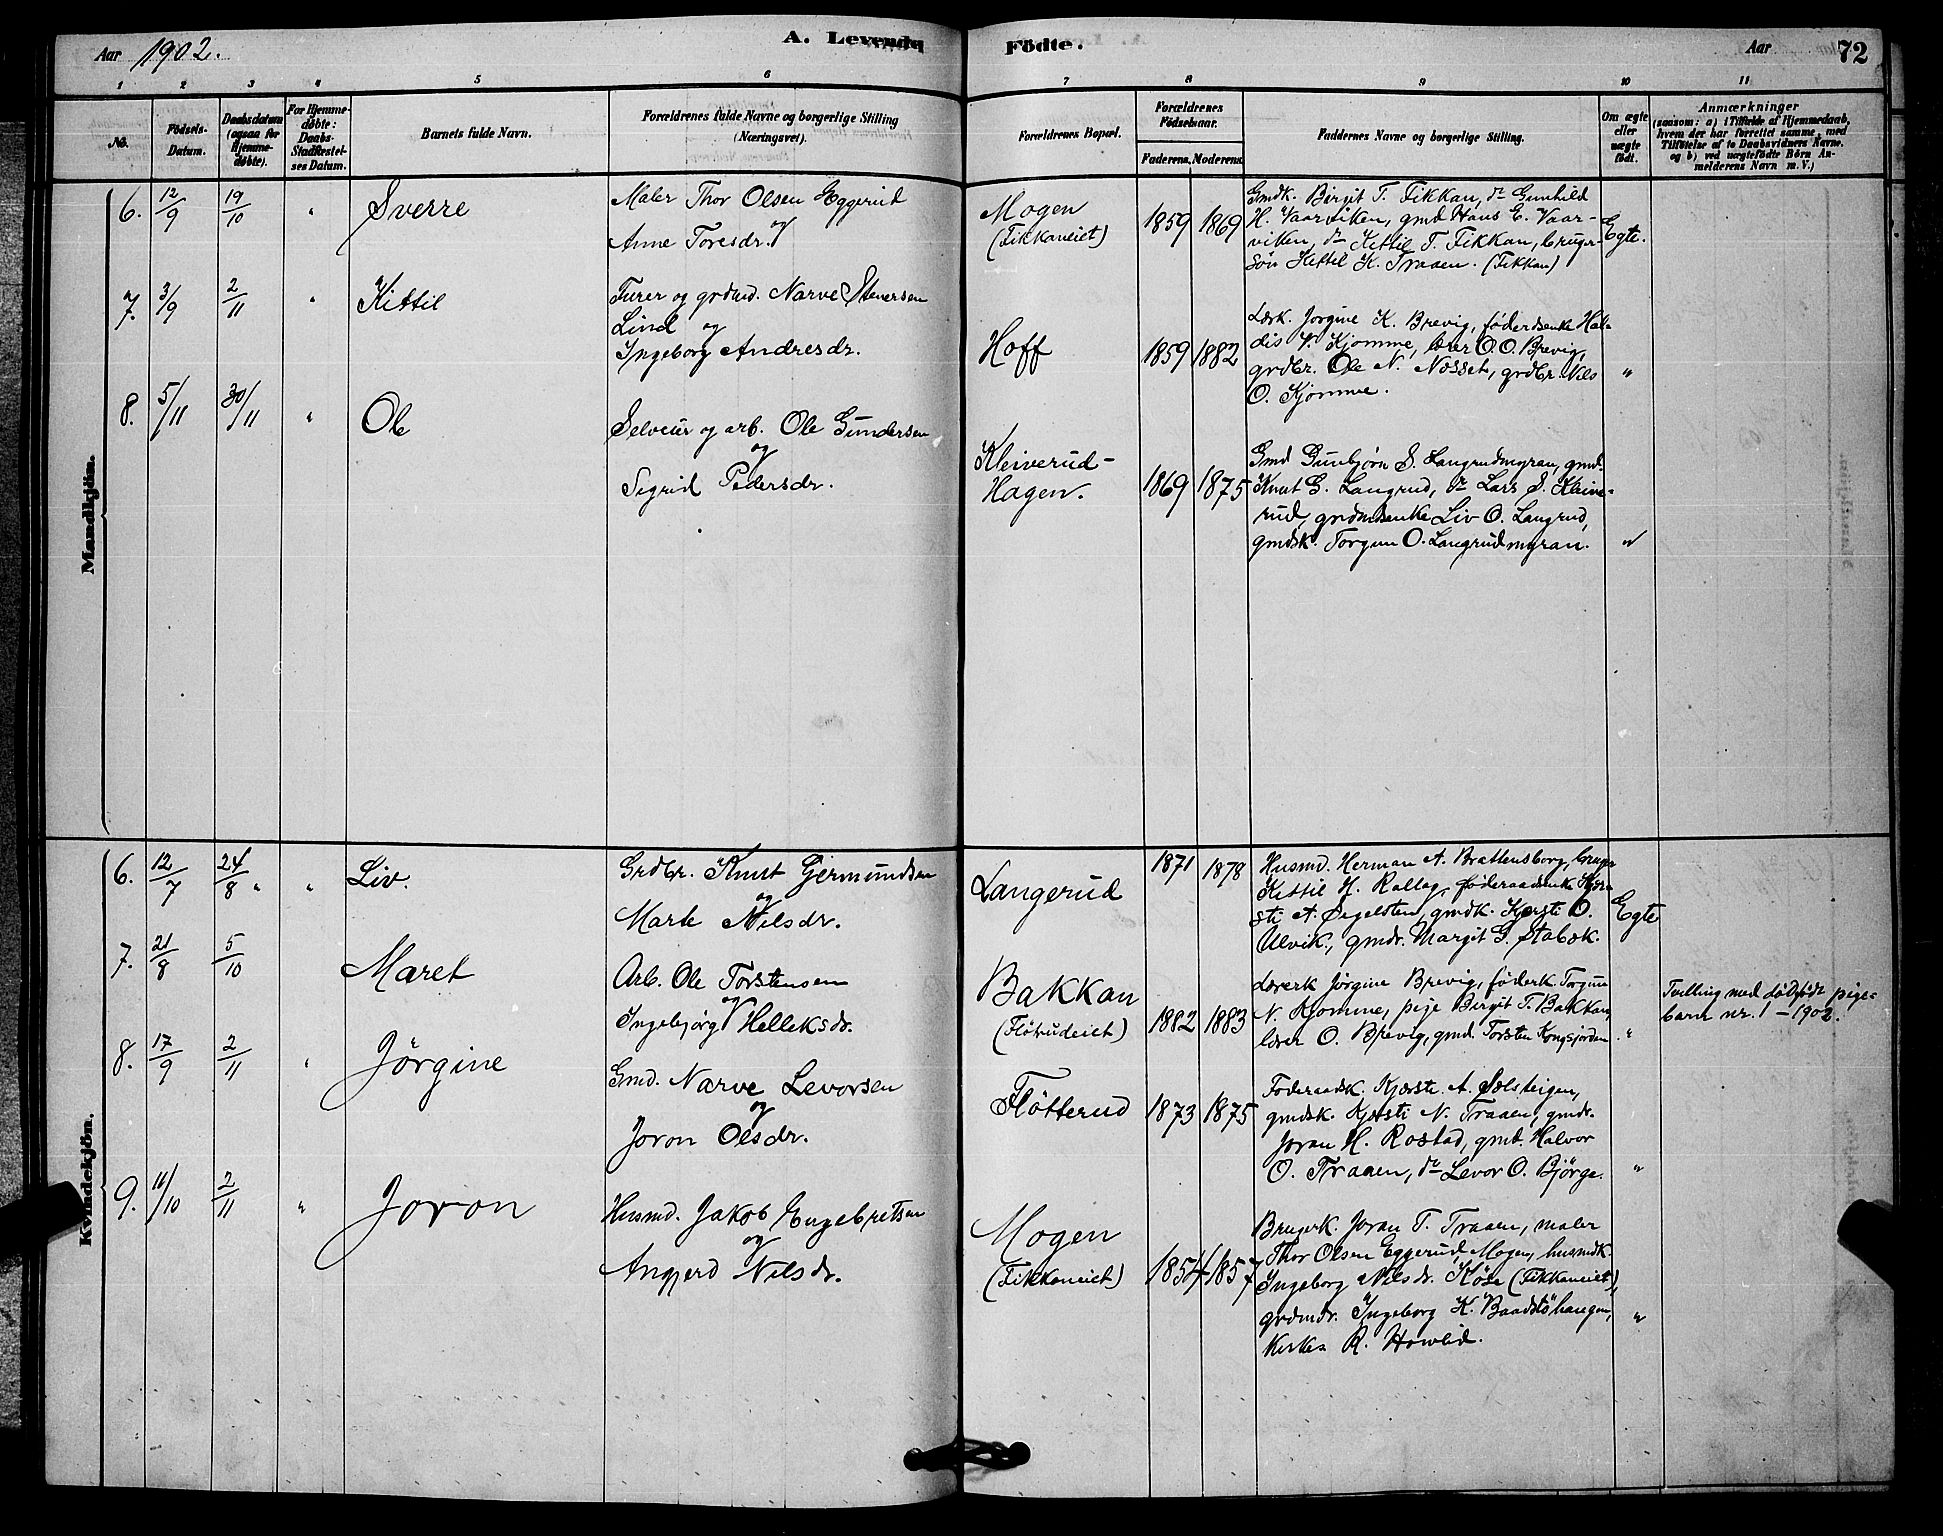 Aar 1902.
A. Levende
Födte.
Aar
72
1 2 3 4 5 6 7 8 9 10 11
No.
Födsels-
Datum.
Daabsdatum
(ogsaa for
Hjemme-
døbte).
For Hjemme-
døbte:
Daabs-
Stadfæstel-
ses Datum.
Barnets fulde Navn.
Forældrenes fulde Navne og borgerlige Stilling
(Næringsvei).
Forældrenes Bopæl.
Forældrenes
Fødselsaar.
Faderens. Moderens.
Faddernes Navne og borgerlige Stilling.
Om ægte
eller
uægte
født.
Anmærkninger
(saasom: a) i Tilfælde af Hjemmedaab,
hvem der har forrettet samme, med
Tilføielse af to Daabsvidners Navne.
og b) ved uægtefødte Börn An-
melderens Navn m. V.)
Mandkjön.
6. 12/9 19/10 " Sverre
Maler Thor Olsen Eggerud
og
Anne Toresdr.
Mogen
(Fikkaneiet)
1859 1869
Gmdk. Birgit T. Fikkan, do Gunhild
H. Vaarviken, gmd Hans E. Vaar-
viken, do Kittil T. Fikkan, bruger-
søn Kittil K. Traaen. (Fikkan)
Egte.
7. 3/9 2/11 " Kittil
Furer og grdmd. Narve Stenersen
Lind og
Ingeborg Andresdr.
Hoff
1859 1882
Lærk. Jorgine K. Brevig, føderdsenke Hal-
dis Kjomme, lærer O. O. Brevig,
grdbr. Ole N. Næsset, grdbr. Nils
O. Kjomme.
"
8. 5/11 30/11 " Ole
Selveier og arb. Ole Gundersen
og
Sigrid Pedersdr.
Kleiverud-
Hagen.
1869 1875
Gmd Gunbjørn S. Langrudmyran, gmd.
Knut G. Langrud, do Lars S. Kleive-
rud, grdmdsenke Liv O. Langrud,
gmdsk. Torgun O. Langrudmyran.
"
Kvindekjön.
6. 12/7 24/8 " " Liv.
Grdbr. Knut Germundsen
og
Marte Nilsdr.
Langerud
1871 1878
Husmd. Herman A. Brattensborg, bruger
Kittil H. Rallag, føderaadsenke Kjær-
sti A. Øigelsten, gmdk. Kjersti O.
Ulvik, gmdr. Margit G. Stabæk.
Egte
7. 21/8 5/10 Maret
Arb. Ole Torstensen
og
Ingebjørg Helleksdr.
Bakkan
(Fløtrudeiet)
1882 1883
Lærerk Jørgine Brevig, føderk. Torgune
N. Kjomme, pige Birgit T. Bakkan,
lærer O. Brevig, gmd. Torsten Kongsjorden
"
Tvilling med dødfødt pige-
barn nr. 1 - 1902.
8. 17/9 2/11 " Jørgine
Gmd. Narve Levorsen
og
Joron Olsdr.
Fløtterud
1873 1875
Foderaadsk. Kjersti A. Solsteigen,
gmdsk. Kjersti N. Traaen, gmdr.
Joran H. Rostad, gmd. Halvor
O. Traaen, do Levor O. Bjørge.
"
9. 11/10 2/11 " Joron
Husmd. Jakob Engebretsen
og
Angjerd Nilsdr.
Mogen
(Fikkaneiet)
1854 1857
Brugerk. Joran T. Traaen, maler
Thor Olsen Eggerud, Mogen, husmdk.
Ingeborg Nilsdr. Køse (Fikkaneiet),
grdmdr. Ingeborg K. Baadstøhaugen,
R. Howlid.
"